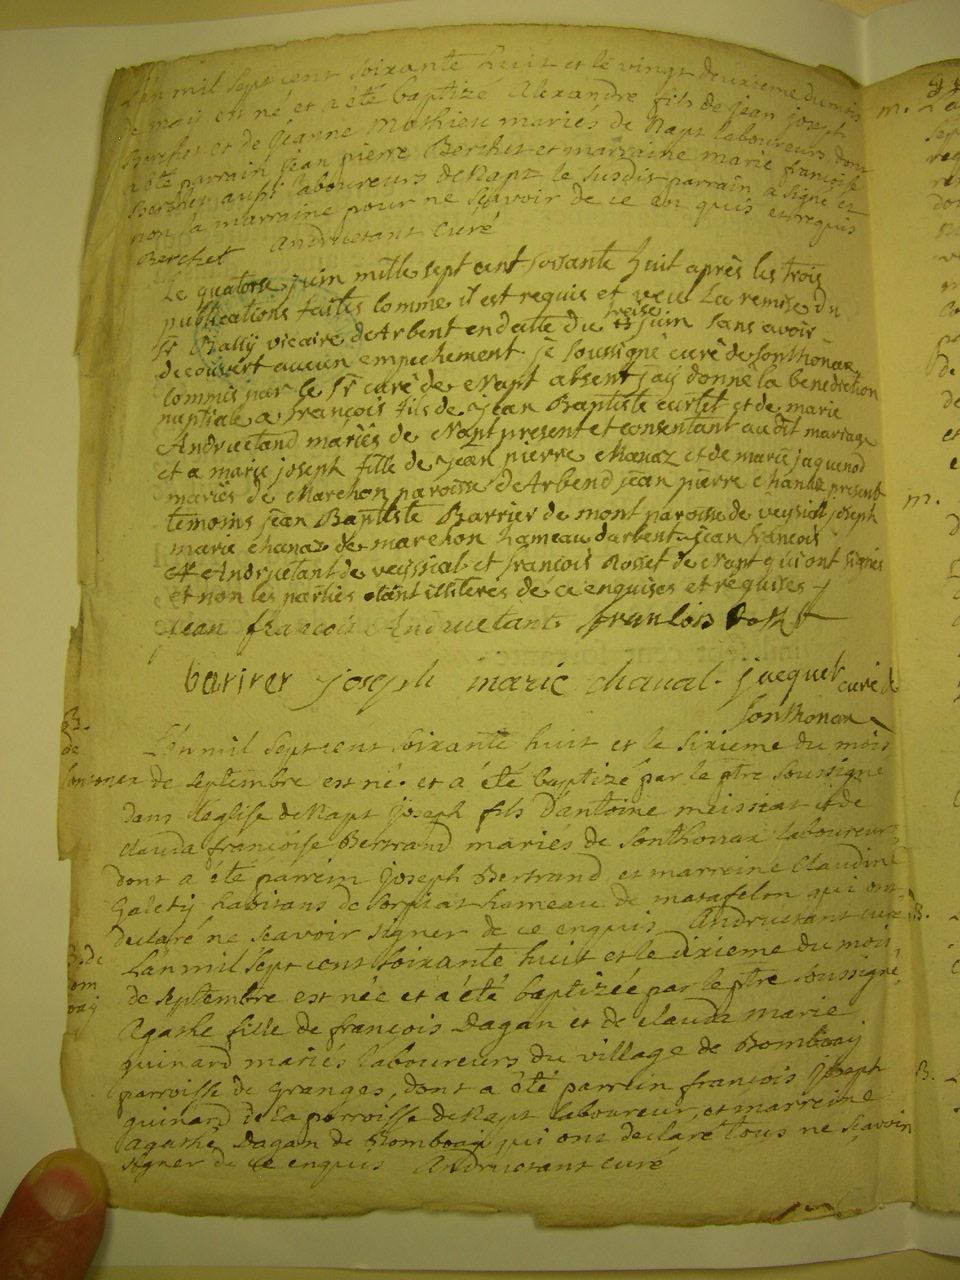 L'an mil sept cent soixante huit et le vingt deuxieme du mois
de mars est né et a été baptizé Alexandre fils de jean joseph
Berchet et de jeanne Mathieu mariés de Napt laboureurs, dont
a été parrain jean pierre Berchet et marraine marie françoise
Berchet aussi laboureurs de Napt le susdit parrain a signé et
non la marraine pour ne sçavoir de ce en quis et requis
Berchet Andruetant curé
Le quatorse juin mille sept cent soisante huit après les trois
publications faittes comme il est requis et veu La remise du
Sr Bally vicaire de Arbent en datte du treise juin sans avoir
decouvert aucun empechement je soussigné curé de Sonthonax
commis par le Sr curé de Napt absent jaÿ donné la benediction
nuptiale a françois fils de jean Baptiste curtet et de marie
Andruetand mariés de Napt present et consentant au dit mariage
et a marie joseph fille de jean pierre chanaz et de marie jaquenod
mariés de Marchon paroisse de Arbend jean pierre chanaz present
temoins jean Baptiste Barrier de mont paroisse de veysiat joseph
marie chanaz de marchon hameau darbent jean francois
Andruetant de veyssiat et françois Rosset de Napt qui ont signés
et non les parties etant illiteres de ce enquises et requises
jean françois Andruetant francois
barirer joseph marie chaval jacquet curé de
Sonthonax
B.
de
L'an mil sept cent soixante huit et le sixieme du mois
de septembre est né et a été baptizé par le ptre soussigné
dans l'eglise de Napt joseph fils d'antoine meissiat et de
clauda françoise Bertrand mariés de Sonthonax laboureurs
dont a été parrein joseph Bertrand et marreine claudine
Galety habitans de Sorpiat hameau de matafelon qui ont
declaré ne scavoir signer de ce enquis Andruetant curé
B. de
L'an mil sept cent soixante huit et le dixieme du mois
de septembre est née et a été baptizée par le ptre soussigné
Agathe fille de françois Dagan et de clauda marie
guinard mariés laboureurs du village de Bombuay
parroisse de Granges, dont a été parrein françois joseph
guinard de la parroisse de Napt laboureur, et marreine
agathe Dagan de Bombuay qui ont declaré tous ne scavoir
signer de ce enquis Andruetant curé
m.
m.
B.
B.